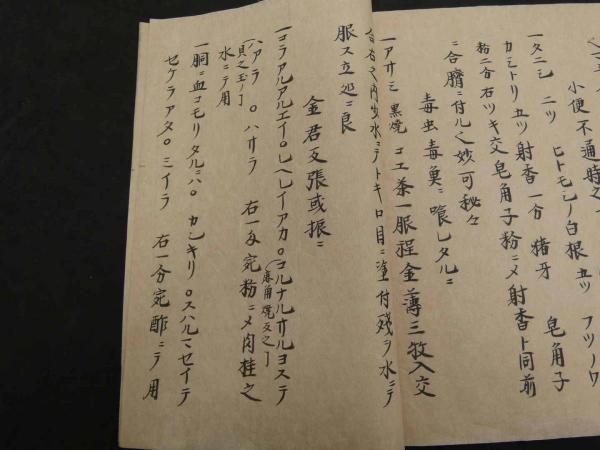 小便不通時之
一タニシ 二ツ ヒトモシノ白根 五ツ フツノワ
カシトリ 五ツ 射香一分 猪牙 皂角子
粉二分右ツキ交皂角子粉ニメ射香ト同前
ニ合臍ニ付ル〱妙可秘々
毒虫毒魚ニ喰レタルニ
一アサミ 黒焼 コエ茶一服程金薄三牧入交
水ニテトキロ目ニ塗付残ヲ水ニテ
服ス立処ニ良
金君支張或振ニ
一コラアルアルエイ。レヘレイアカ。コルナルサルヨステ
(鹿角焼支之丁
ハアラ 。ハサラ 右一匁宛粉ニメ肉桂之
(貝之玉ノ丁
水ニテ用
一胴ニ血コモリタルニハ。カンキリ。スハルマセイテ
セケラアタ。ミイラ 右一分宛酢ニテ用